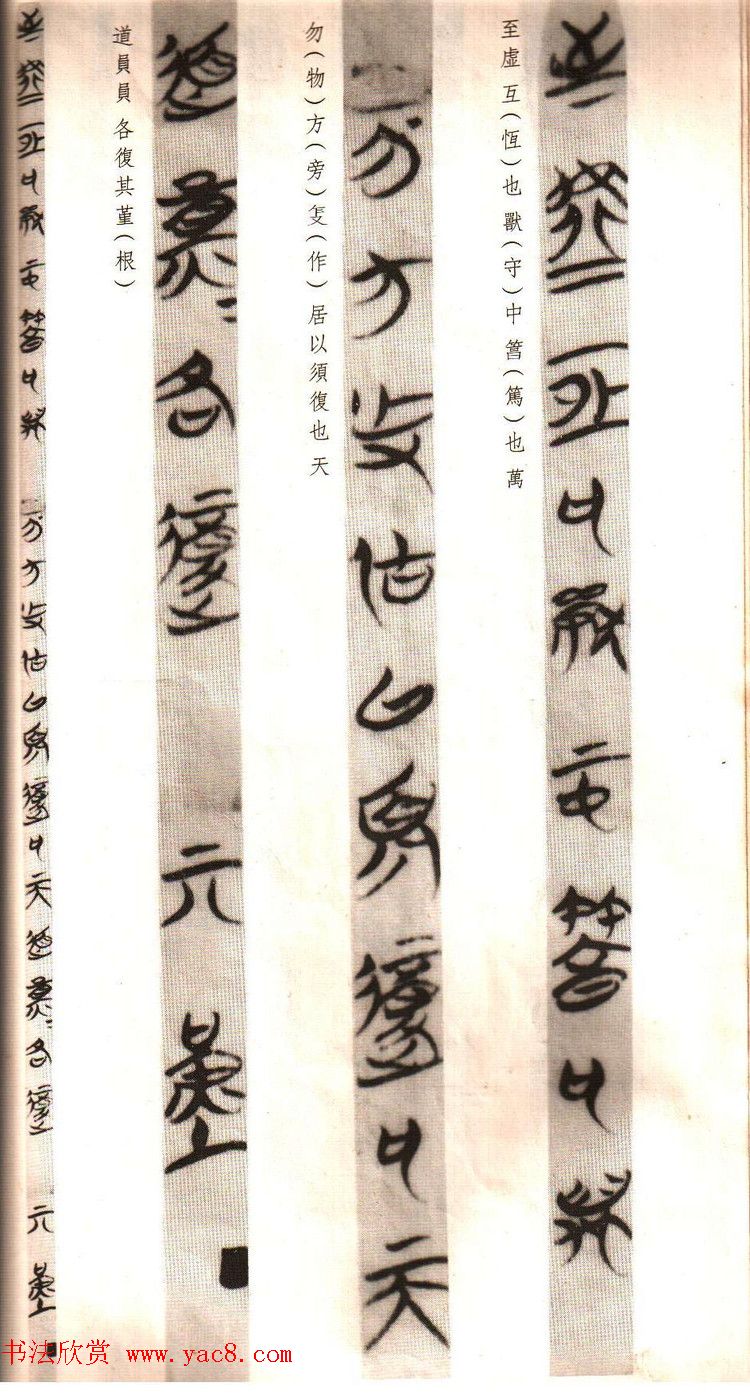 至虛 互（恆）也 獸（守）中 䈞（篤）也 萬
勿（物）方（旁）㑅（作） 居以須復也 天
道員員 各復其堇（根）
书法欣赏 www.yac8.com